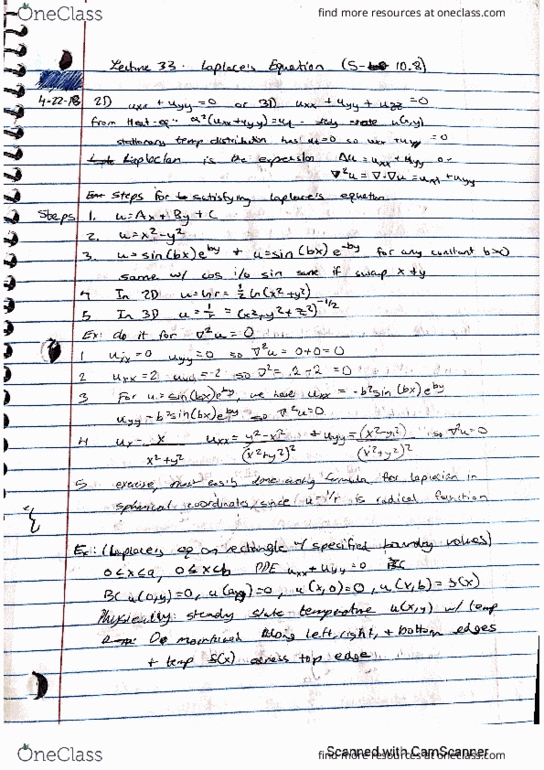 OneClass
find more resources at oneclass.com
Lecture 33. Laplace's Equation (S- 10.8)
4-22-18 2D uxx + uyy = 0 or 3D uxx + uyy + uzz = 0
From Heat-eq α²(uxx+uyy)=ut steady state u(x,y)
stationary temp distribution has ut=0 so uxx + uyy = 0
Laplacian is the expression Δu = uxx + uyy or
∇²u = ∇·∇u = uxx + uyy
Steps for satisfying Laplace's equation
Steps 1. u=Ax+By+C
2. u=x²-y²
3. u=sin(bx)e^by + u=sin(bx)e^-by for any constant b>0
same w/ cos i/o sin same if swap x+y
4 In 2D u=ln r = ½ ln(x²+y²)
5 In 3D u=1/r = (x²+y²+z²)^-1/2
Ex: do it for ∇²u=0
1 uxx=0 uyy=0 so ∇²u = 0+0=0
2 uxx=2 uyy=-2 so ∇²= 2-2=0
3 For u=sin(bx)e^by, we have uxx = -b²sin(bx)e^by
uyy=b²sin(bx)e^by so ∇²u=0
4 ux= x/(x²+y²) uxx= (y²-x²)/(x²+y²)² + uyy= (x²-y²)/(x²+y²)² so ∇²u=0
5 exercise, most easily done using formula for laplacian in
spherical coordinates, since u=1/r is radical function
Ex: (Laplace's eq on rectangle w/ specified boundary values)
0≤x≤a, 0≤x≤b PDE uxx + uyy=0 BC
BC u(0,y)=0, u(a,y)=0, u(x,0)=0, u(x,b)=f(x)
Physically: steady state temperature u(x,y) w/ temp
0 maintained along left, right, + bottom edges
+ temp f(x) across top edge
Scanned with CamScanner
OneClass
find more resources at oneclass.com